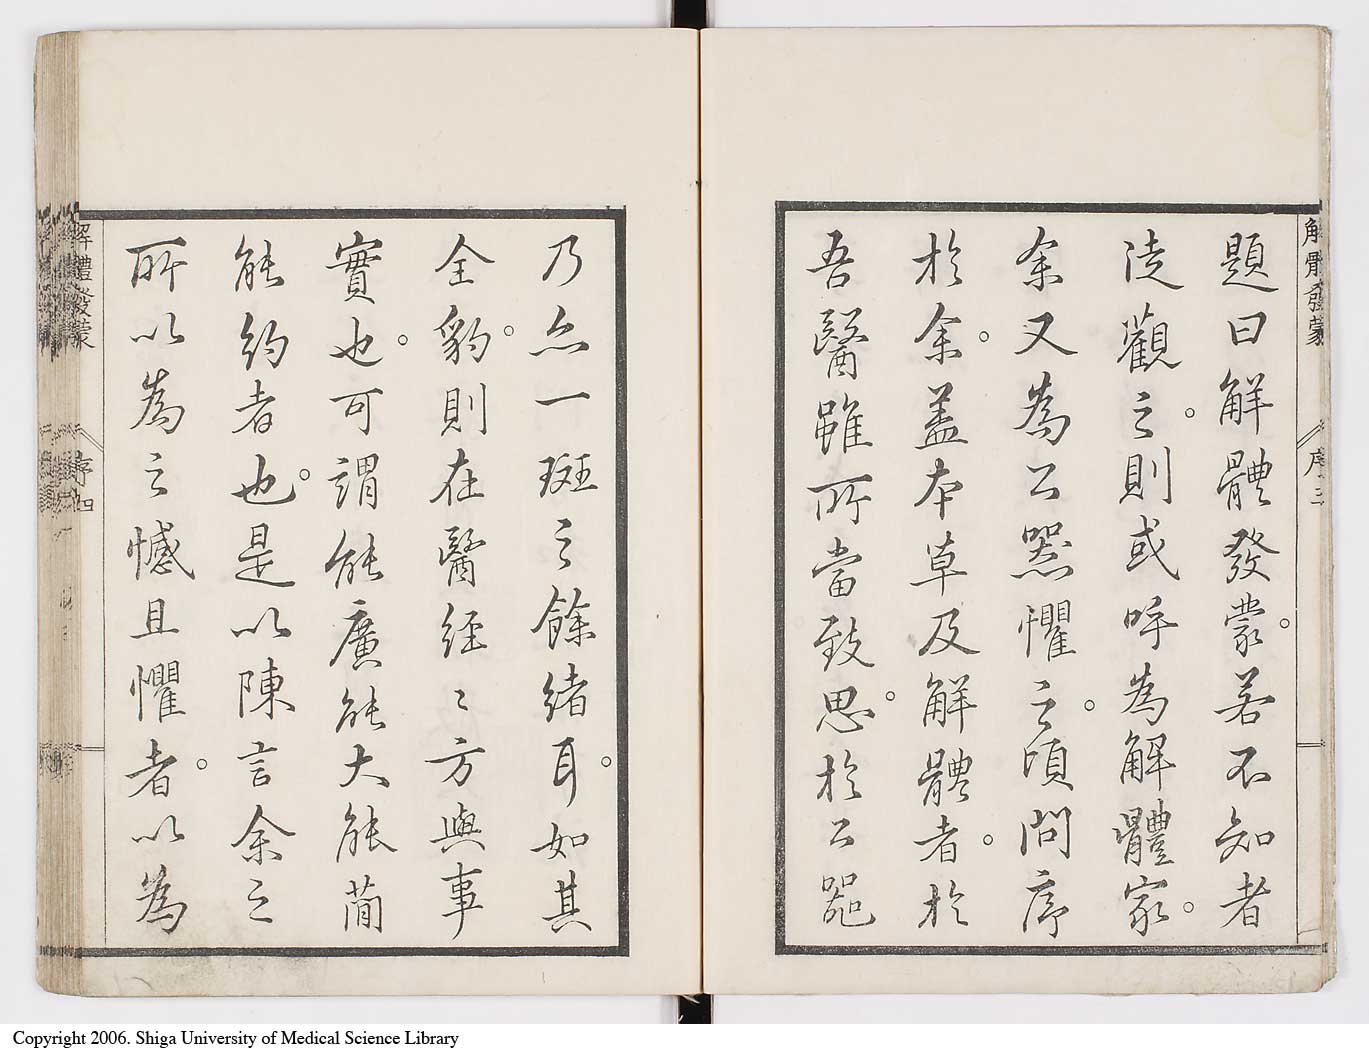 解體發蒙 序三
題曰解體發蒙。若不知者
徒觀之。則或呼為解體家。
余又為公器懼之。頃問序
於余。蓋本草及解體者。於
吾醫雖所當致思。於公器
乃亦一斑之餘緒耳。如其
全豹。則在醫經〻方與事
實也。可謂能廣能大能簡
能約者也。是以陳言余之
所以為之憾且懼者。以為
解體發蒙 序四
Copyright 2006. Shiga University of Medical Science Library